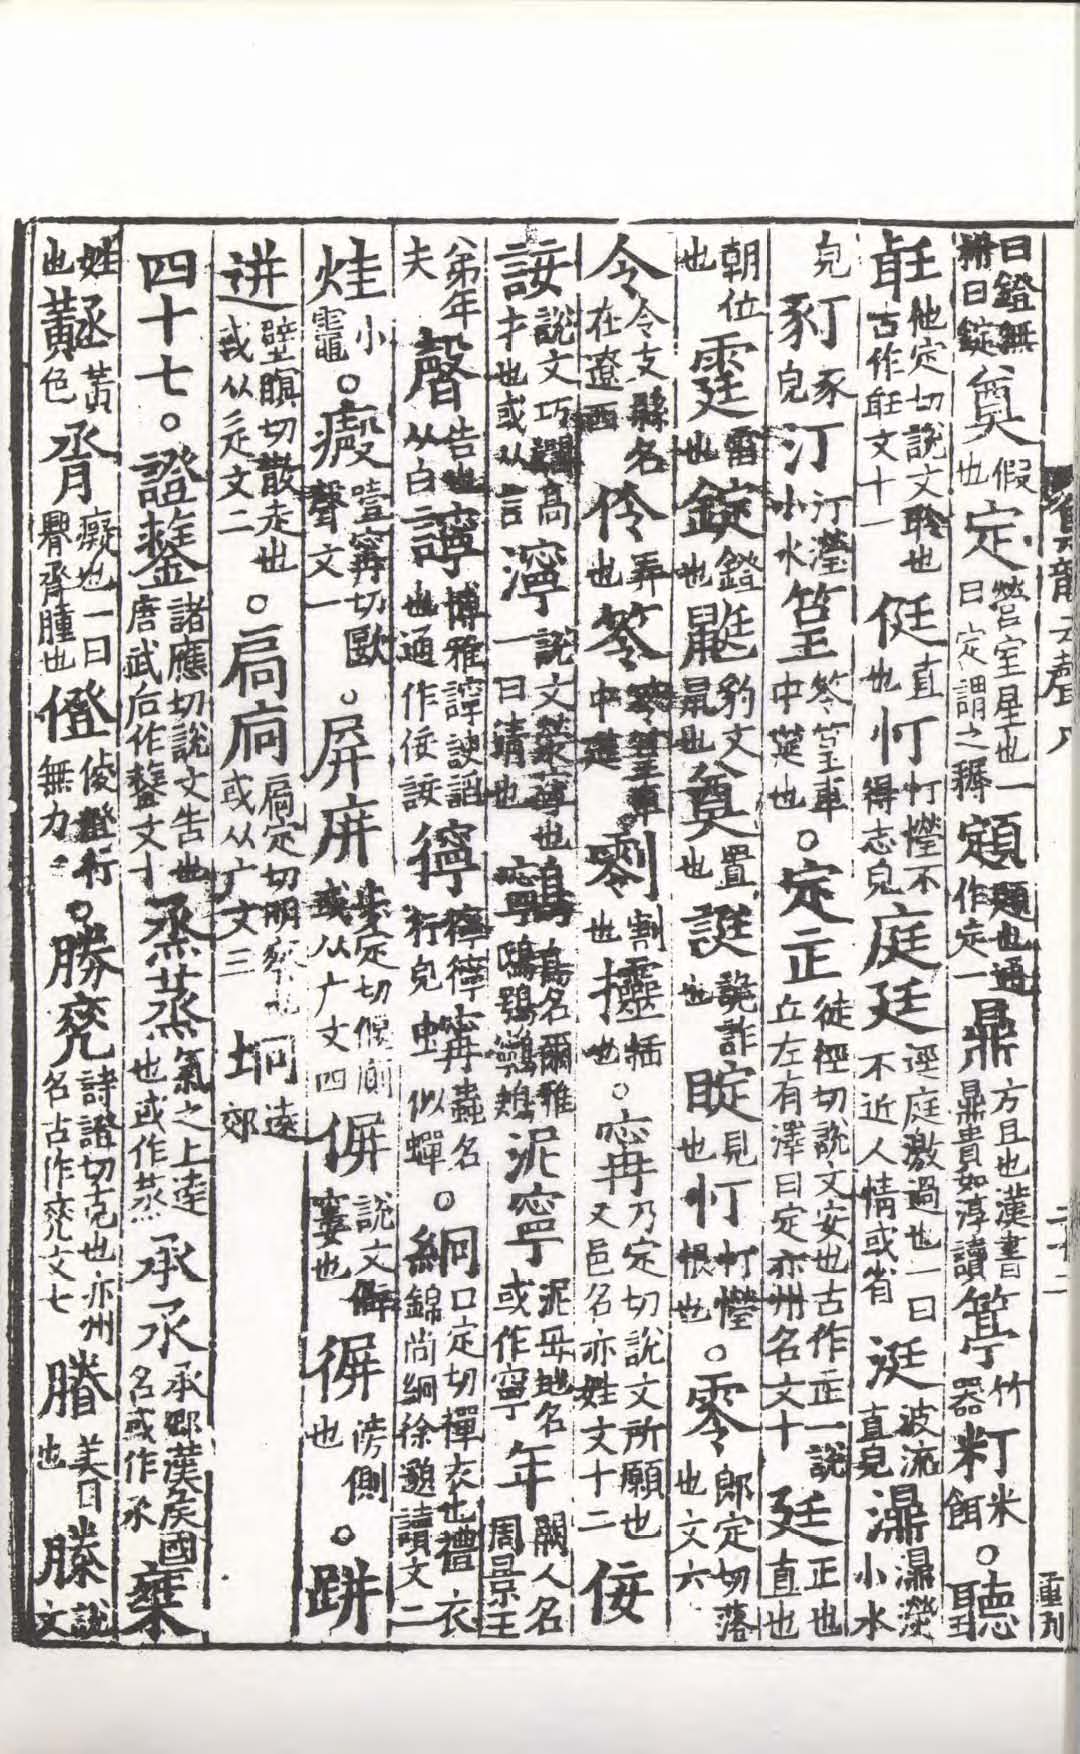 曰鐙無柎曰錠奠假也定營室星也一曰定謂之耨顁題也通作定鼎方且也漢書鼎貴如淳讀䇸竹器米丁米餌○聽
𦔻他定切說文聆也古作𦔻文十一侹直也忊忊憕不得志皃庭廷逕庭激過也一曰不近人情或省涏波流直皃濎濎濙小水
皃豕丁豕皃汀汀瀅小水筳笭筳車中莚也○定㱏徒徑切說文安也古作㱏一說丘左有澤曰定亦州名文十廷正也直也
朝位也霆雷也錠鐙也鼮豹文鼠也奠置也誔詭詐也𥅘見也忊忊憕恨也○零郎定切落也文六
令令支縣名在遼西伶弄也笭笭筳車中莚剢割也拎靈括也○甯乃定切說文所願也又邑名亦姓文十二佞
𧥺說文巧讇高才也或从言濘說文滎濘也一曰清也鸋鳥名爾雅鴟鴞鸋鴂泥寧泥毋地名或作寧年闕人名周景王
弟年夫磬告也从白𧭈博雅𧭈諛謟也通作佞𧥺儜儜儜行皃甯蟲名虫似蟬○絅口定切禪衣也禮衣絅錦尚絅徐邈讀文二
烓小竈○癜噎甯切歐聲文一○屏庰步定切偃廁或从广文四偋說文僻窶也徬傍側也○跰
迸壁瞑切散走也或从辵文二○扃㢠扃定切明察也或从广文三坰遠郊
四十七○證𨭗諸應切說文告也唐武后作𨭗文十烝蒸氣之上達也或作蒸承承承鄉漢侯國名或作承𣓏
姓也烝黃黃色脀癡也一曰舋脀腫也僜倰僜行無力○勝𠒦詩證切克也亦州名古作𠒦文七䁬美目也塍說文
去聲八
二十二
重刊